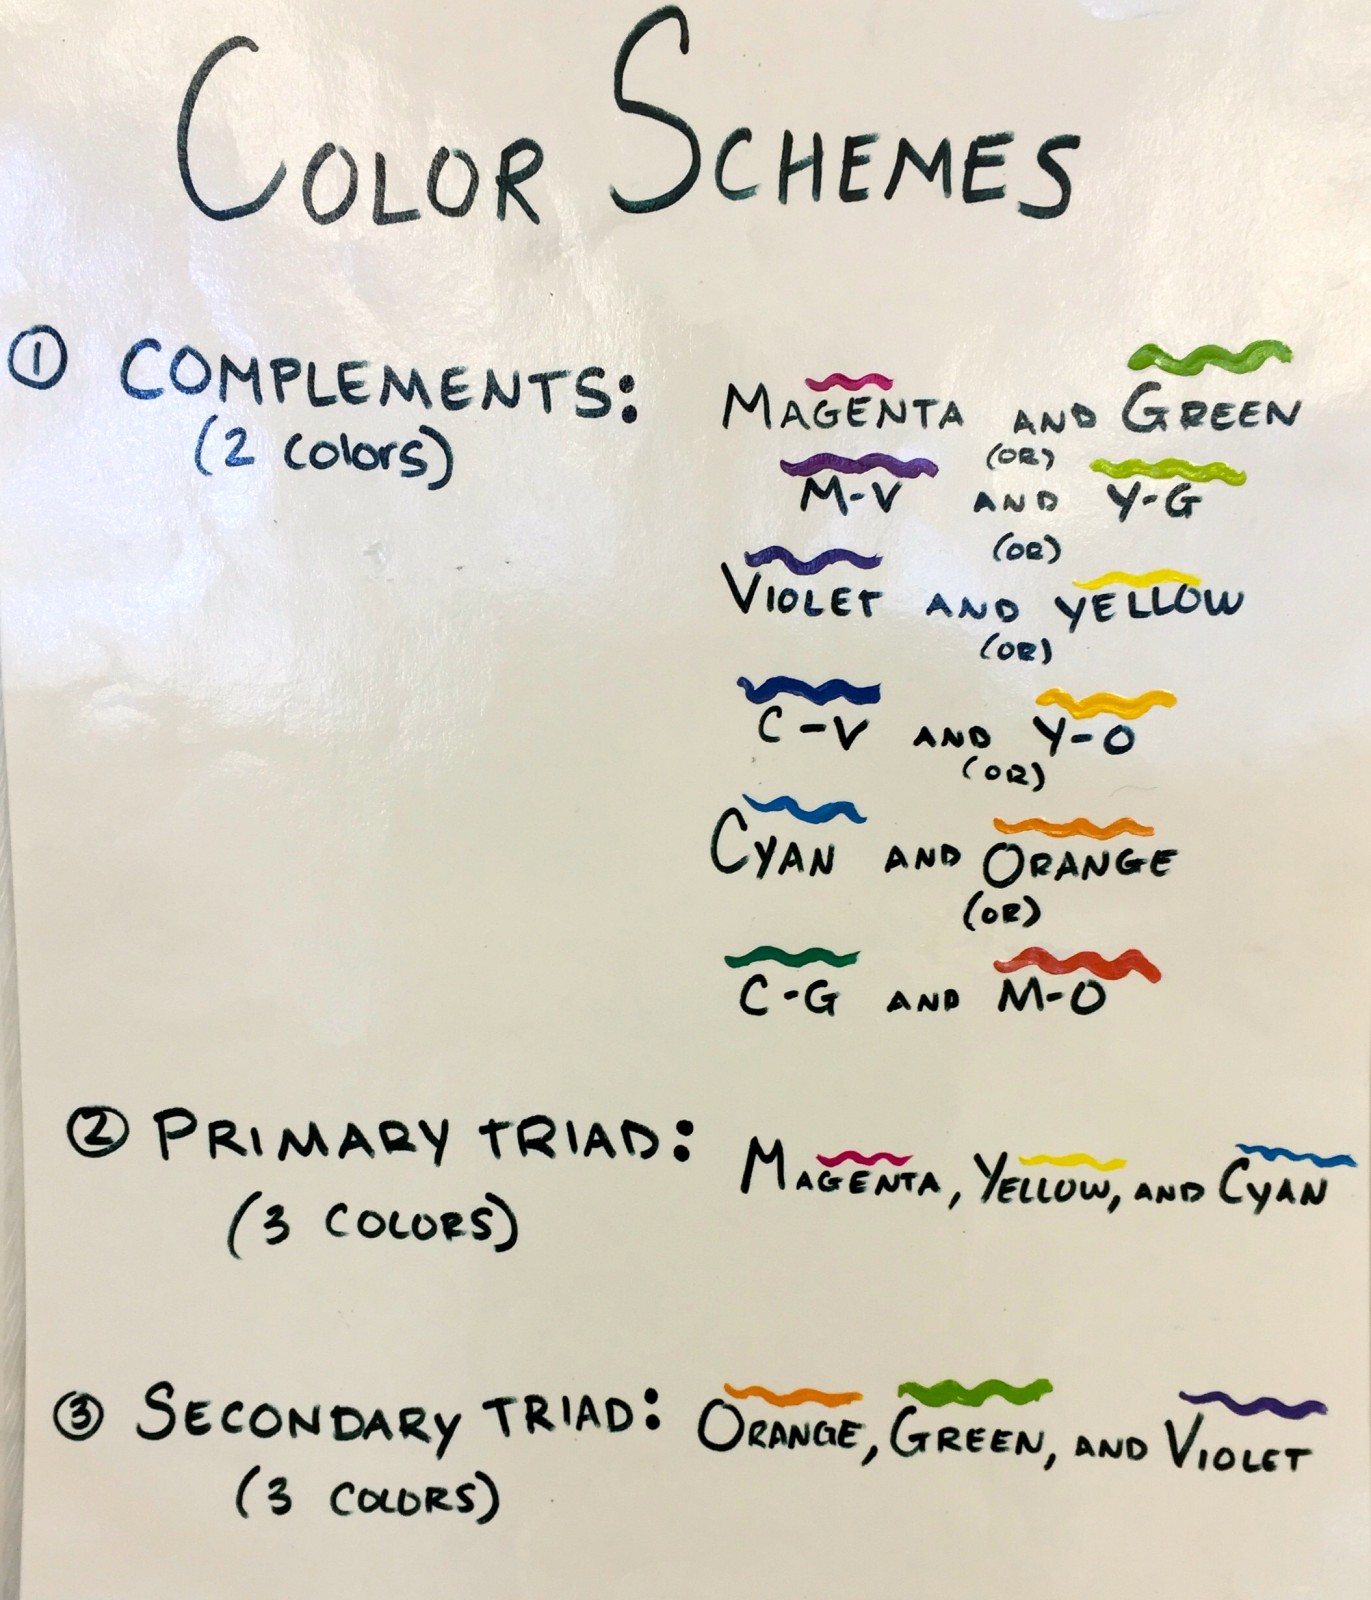 COLOR SCHEMES
① COMPLEMENTS: MAGENTA AND GREEN
(2 colors) (OR)
M-V AND Y-G
(OR)
VIOLET AND YELLOW
(OR)
C-V AND Y-O
(OR)
CYAN AND ORANGE
(OR)
C-G AND M-O
② PRIMARY TRIAD: MAGENTA, YELLOW, AND CYAN
(3 COLORS)
③ SECONDARY TRIAD: ORANGE, GREEN, AND VIOLET
(3 COLORS)